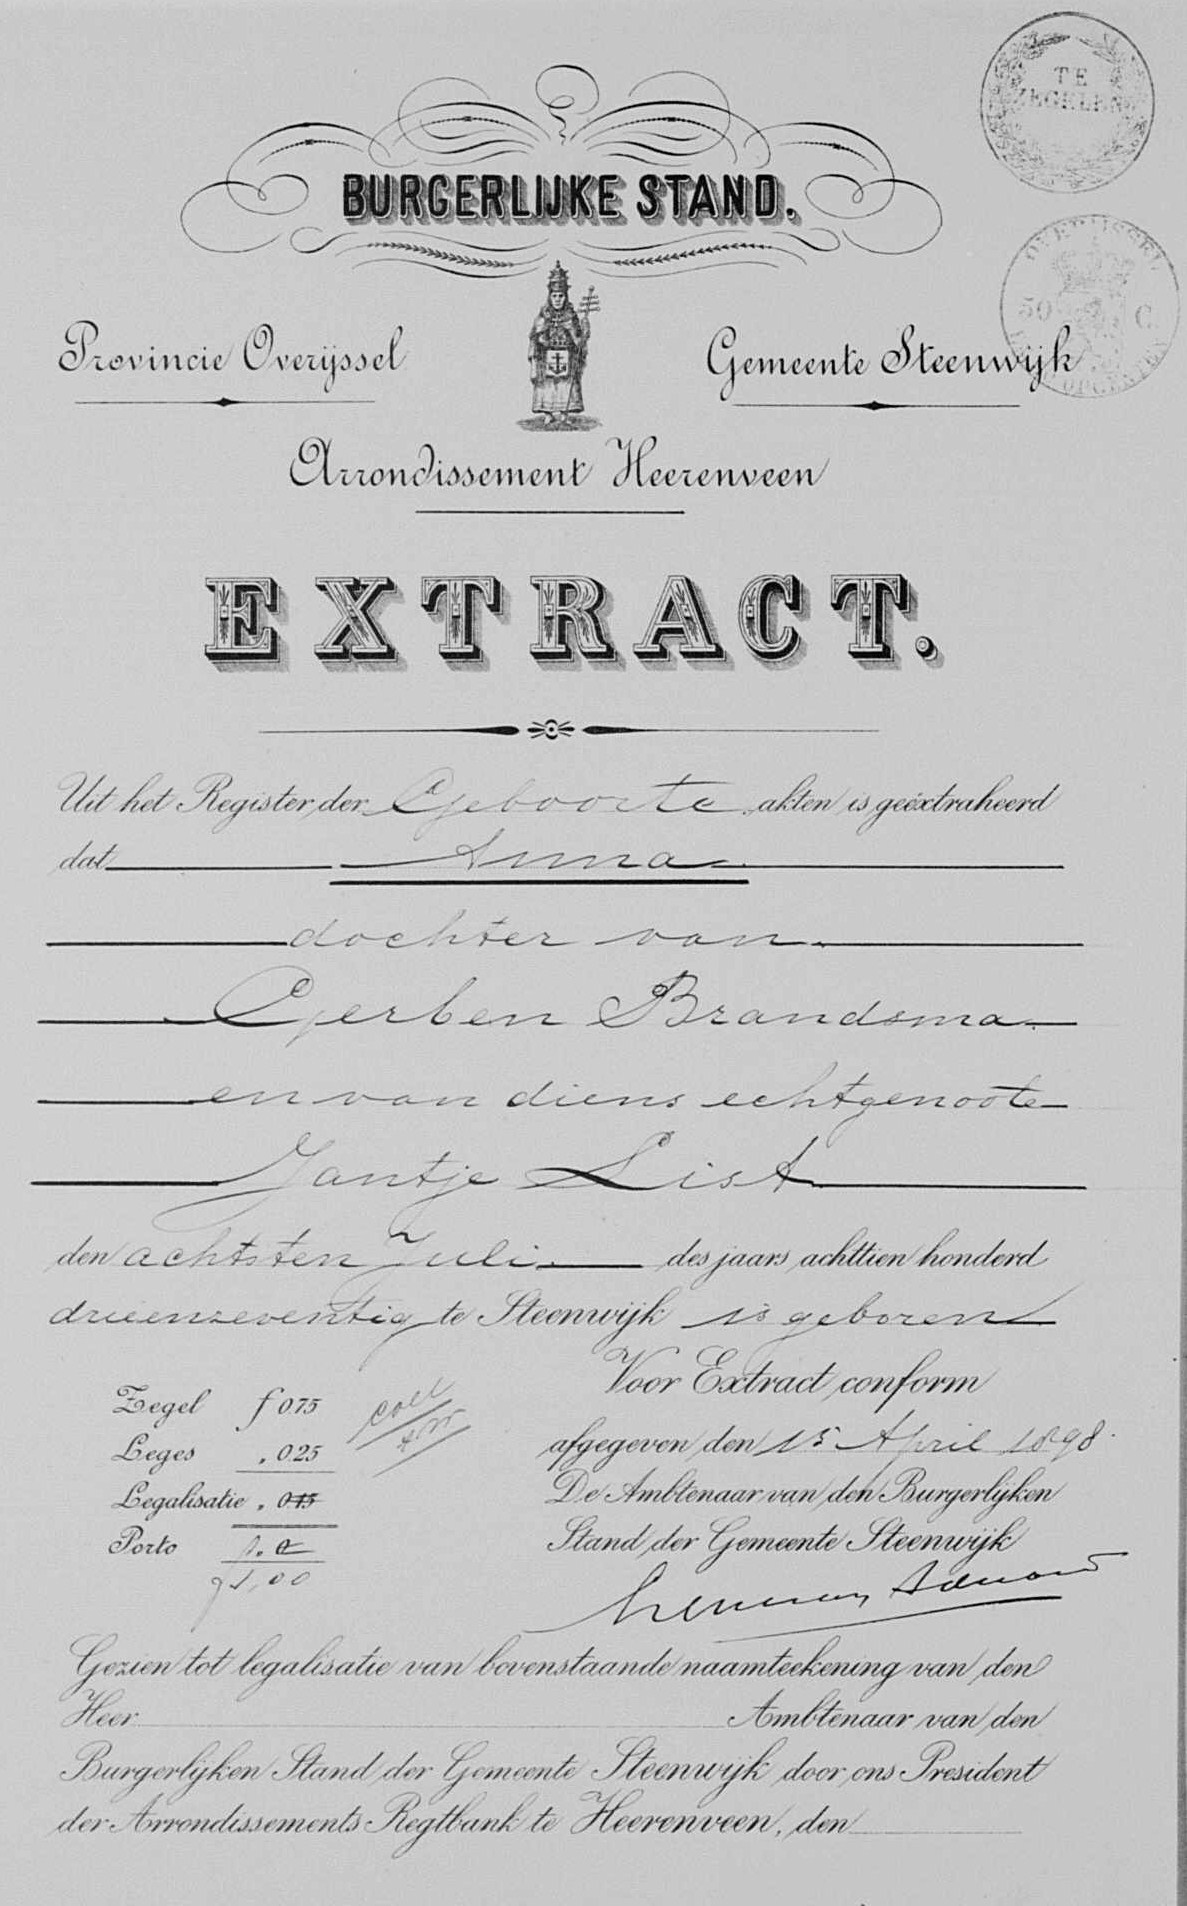 TE
ZEGELEN
BURGERLIJKE STAND.
OVERIJSSEL
50 C.
OPCENTEN
Provincie Overijssel
Gemeente Steenwijk
Arrondissement Heerenveen
EXTRACT.
Uit het Register der Geboorte akten is geëxtraheerd
dat Anna
dochter van
Gerben Brandsma
en van diens echtgenoote
Jantje List
den achtsten Juli des jaars achttien honderd
drieenzeventig te Steenwijk is geboren
Voor Extract conform
Zegel f 0.75
afgegeven den 15 April 1898.
Leges „ 0.25
De Ambtenaar van den Burgerlijken
Legalisatie „ 0.15
Stand der Gemeente Steenwijk
Porto
f 1,00
Gezien tot legalisatie van bovenstaande naamteekening van den
Heer Ambtenaar van den
Burgerlijken Stand der Gemeente Steenwijk door ons President
der Arrondissements Regtbank te Heerenveen, den